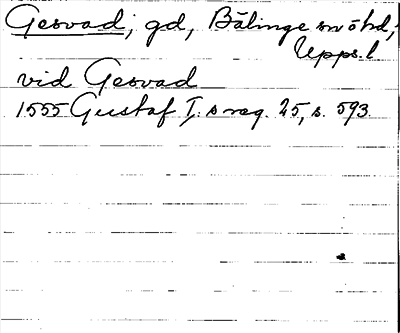 Gesvad, gd, Bälinge sn o hd,
Upps. l
vid Gesvad
1555 Gustaf I:s reg. 25, s. 593.